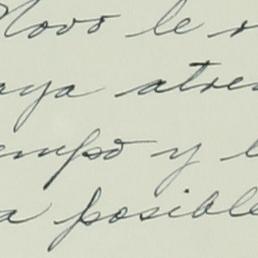 Novo le
aya atre
empo y
a posible